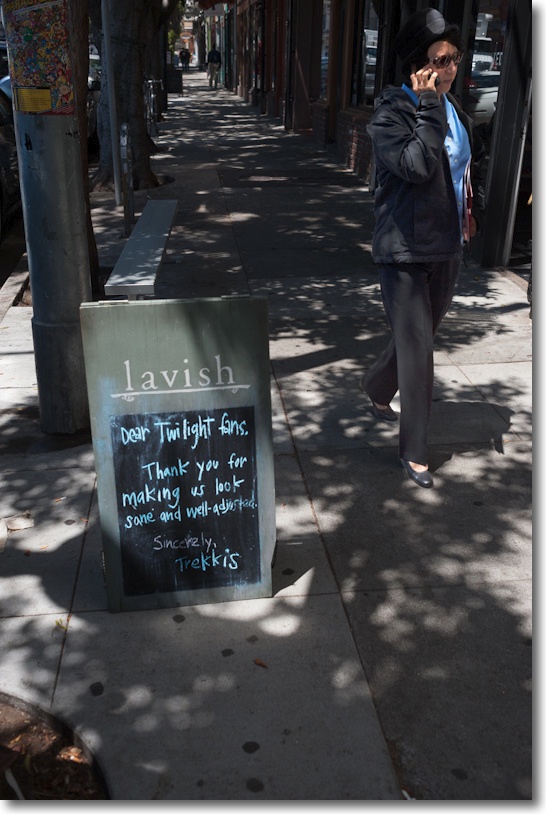 lavish
Dear Twilight fans.
Thank you for
making us look
sane and well-adjusted.
Sincerely,
Trekkis